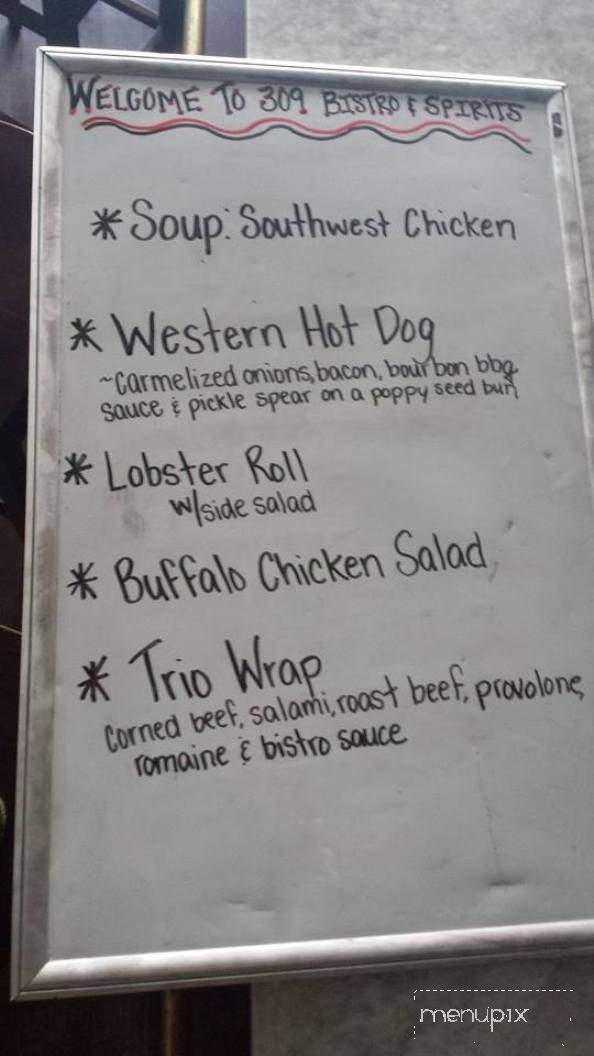 WELCOME TO 309 BISTRO & SPIRITS
* Soup: Southwest Chicken
* Western Hot Dog
~Carmelized onions, bacon, bourbon bbq
sauce & pickle spear on a poppy seed bun
* Lobster Roll
w/side salad
* Buffalo Chicken Salad
* Trio Wrap
Corned beef, salami, roast beef, provolone,
romaine & bistro sauce
menupix